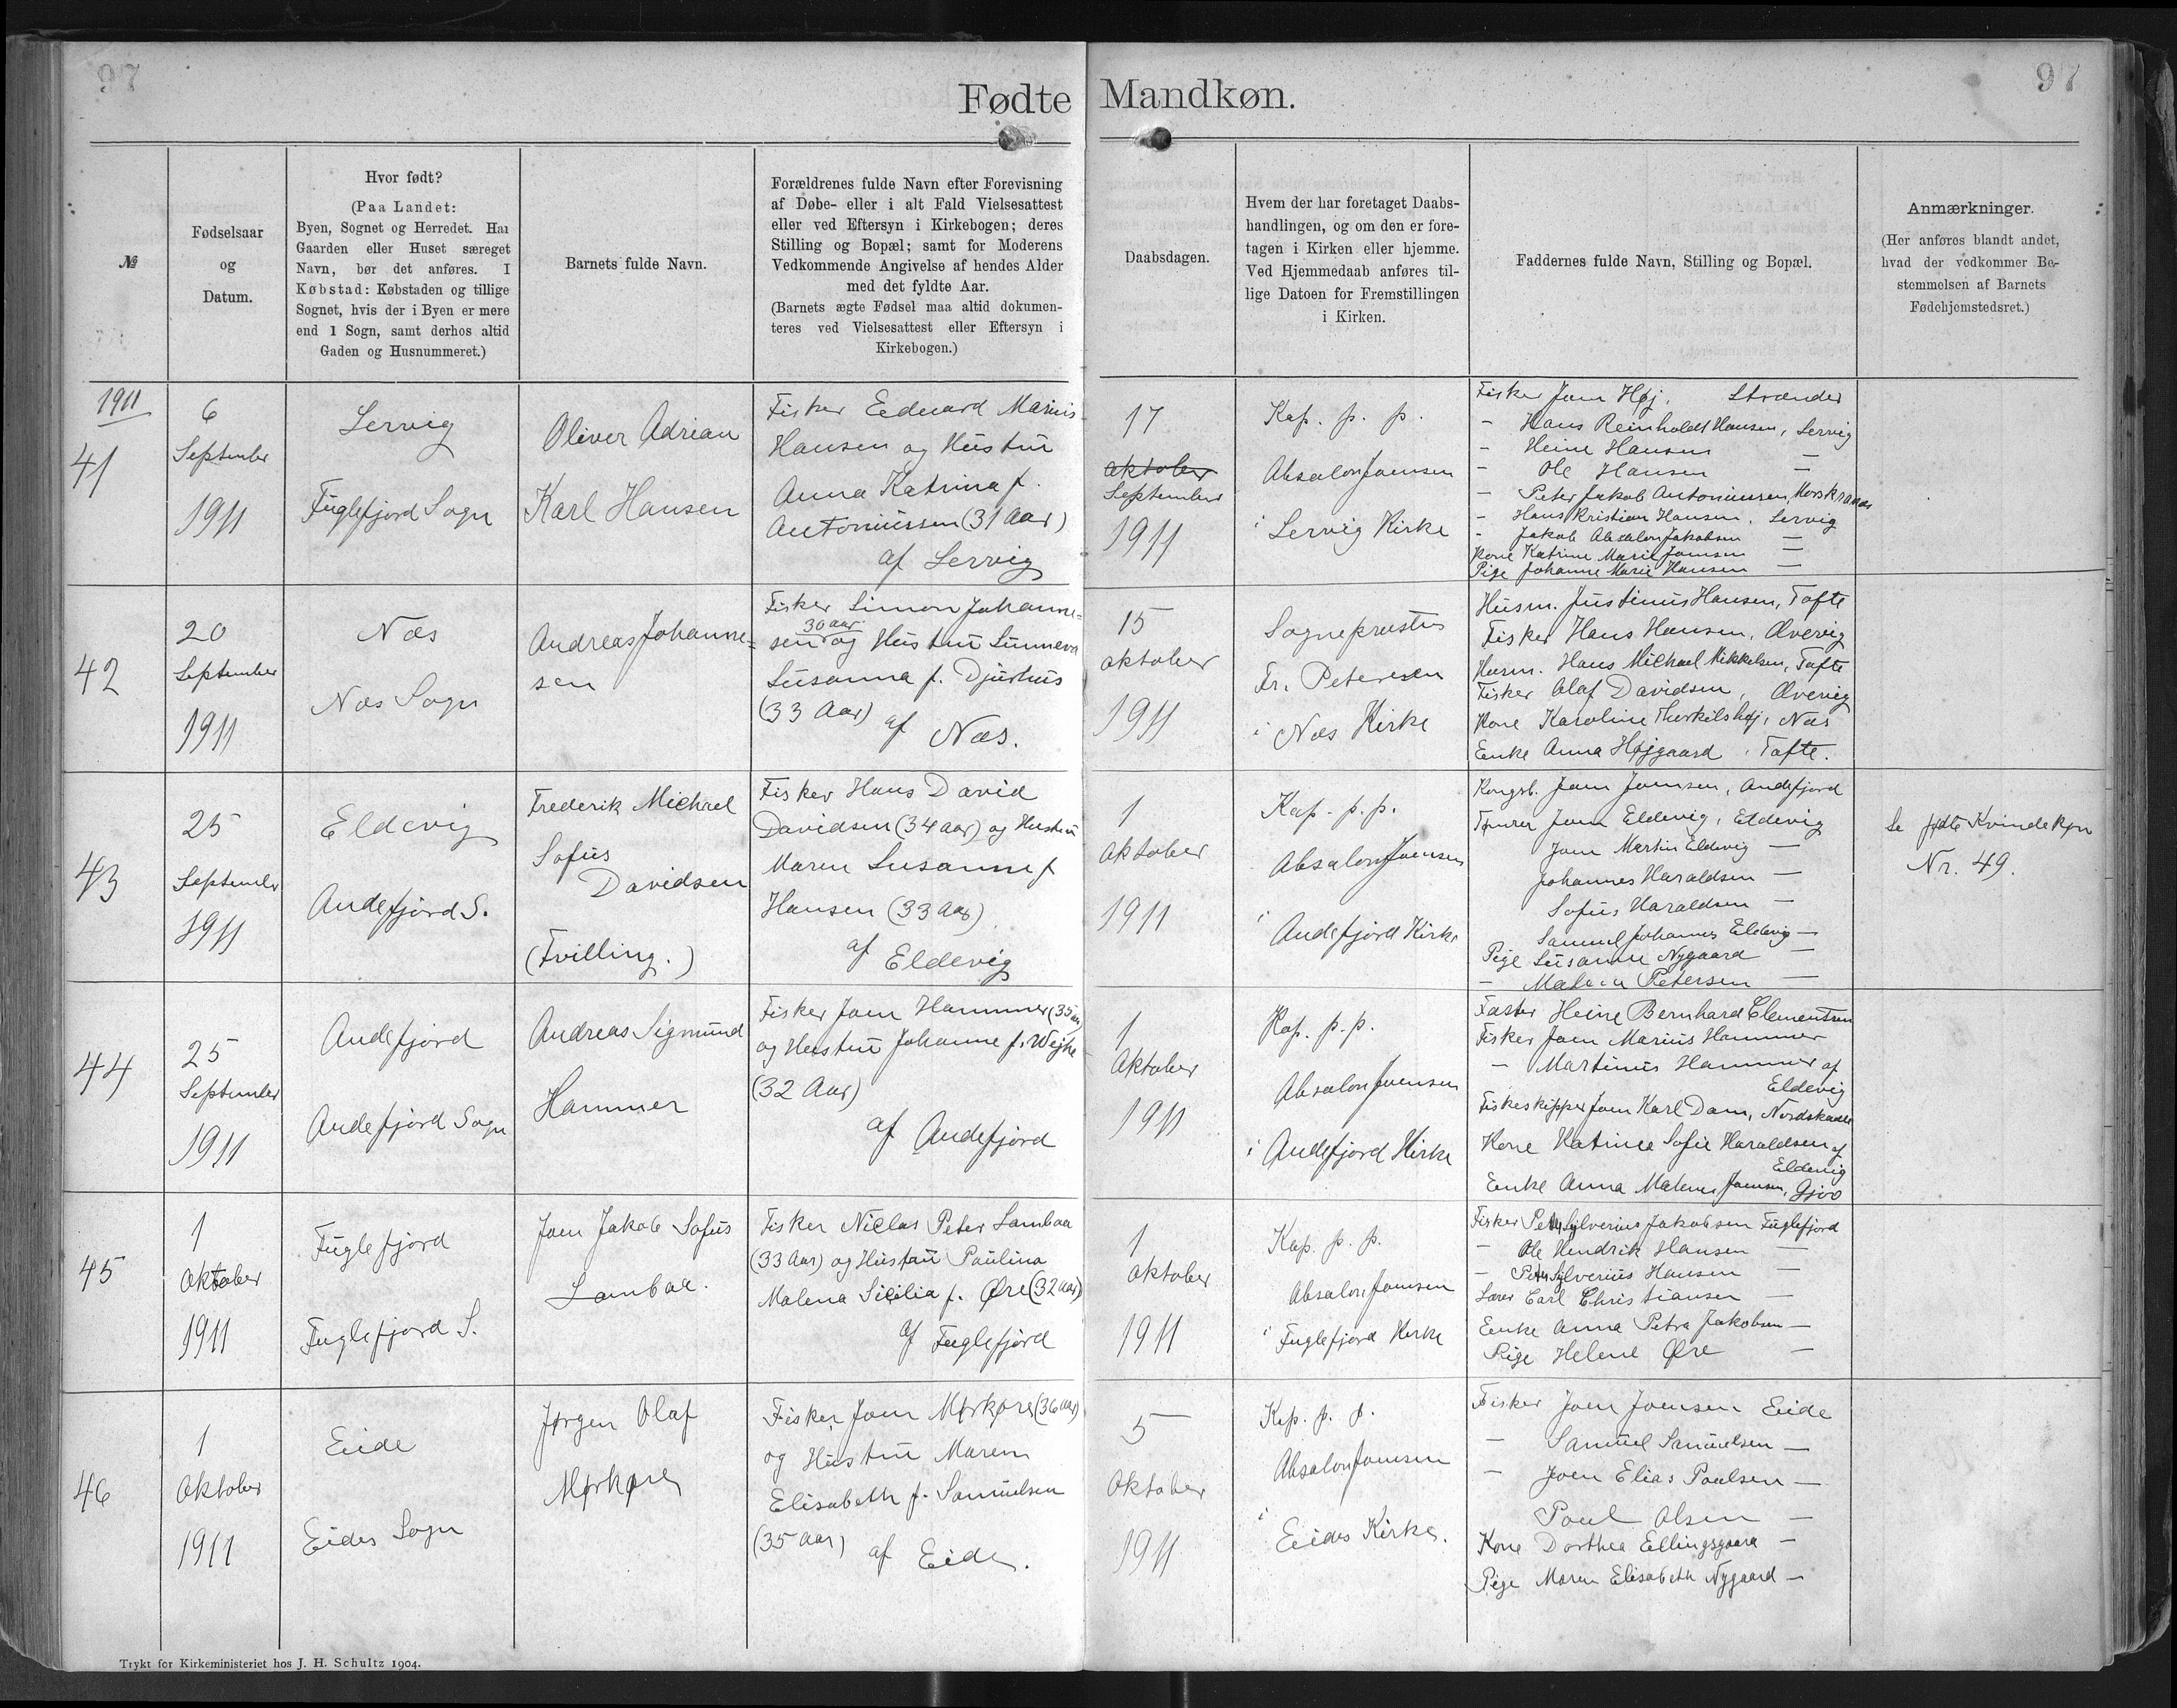 97
97
Fødte Mandkøn.
№
Fødselsaar
og
Datum.
Hvor født?
(Paa Landet:
Byen, Sognet og Herredet. Har
Gaarden eller Huset særeget
Navn, bør det anføres. I
Købstad: Købstaden og tillige
Sognet, hvis der i Byen er mere
end 1 Sogn, samt derhos altid
Gaden og Husnummeret.)
Barnets fulde Navn.
Forældrenes fulde Navn efter Forevisning
af Døbe- eller i alt Fald Vielsesattest
eller ved Eftersyn i Kirkebogen; deres
Stilling og Bopæl; samt for Moderens
Vedkommende Angivelse af hendes Alder
med det fyldte Aar.
(Barnets ægte Fødsel maa altid dokumen-
teres ved Vielsesattest eller Eftersyn i
Kirkebogen.)
Daabsdagen.
Hvem der har foretaget Daabs-
handlingen, og om den er fore-
tagen i Kirken eller hjemme.
Ved Hjemmedaab anføres til-
lige Datoen for Fremstillingen
i Kirken.
Faddernes fulde Navn, Stilling og Bopæl.
Anmærkninger.
(Her anføres blandt andet,
hvad der vedkommer Be-
stemmelsen af Barnets
Fødehjemstedsret.)
1911
41
6
September
1911
Lervig
Fuglefjord Sogn
Oliver Adrian
Karl Hansen
Fisker Eduard Marius
Hansen og Hustru
Anna Katrina f.
Antoniussen (31 Aar)
af Lervig
17
oktober
September
1911
Kap. p. p.
Absalon Joensen
i Lervig Kirke
Fisker Joen Høj, Strænder
- Hans Reinholdt Hansen, Lervig
- Heine Hansen —
- Ole Hansen —
- Peter Jakob Antoniussen, Morskranes
- Hans Kristian Hansen, Lervig
- Jakob Absalon Jakobsen —
Kone Katrine Marie Joensen —
Pige Johanne Marie Hansen —
42
20
September
1911
Næs
Næs Sogn
Andreas Johanne=
sen
Fisker Simon Johanne=
30 aar
sen og Hustru Sunneva
Susanna f. Djurhus
(33 Aar)
af Næs.
15
oktober
1911
Sognepræsten
Fr. Petersen
i Næs Kirke
Husm. Justinus Hansen, Tofte
Fisker Hans Hansen, Æverig
Husm. Hans Michael Mikkelsen, Tofte
Fisker Olaf Davidsen, Æverig
Kone Karoline Therkilshøj, Næs
Enke Anna Højgaard, Tofte.
43
25
September
1911
Eldevig
Andefjord S.
Frederik Michael
Sofus
Davidsen
(Tvilling.)
Fisker Hans David
Davidsen (34 aar) og Hustru
Maren Susanne f.
Hansen (33 aar)
af Eldevig
1
oktober
1911
Kap. p. p.
Absalon Joensen
i Andefjord Kirke
Kongsb. Joen Joensen, Andefjord
Joen Eldevig, Eldevig
Joen Martin Eldevig —
Johannes Haraldsen —
Sofus Haraldsen —
Samuel Johannes Eldevig —
Pige Susanne Nygaard —
- Malene Petersen —
Se fødte Kvindekøn
Nr. 49.
44
25
September
1911
Andefjord
Andefjord Sogn
Andreas Sigmund
Hammer
Fisker Joen Hammer (35 aar)
og Hustru Johanne f. Wejhe
(32 Aar)
af Andefjord
1
Oktober
1911
Kap. p. p.
Absalon Joensen
i Andefjord Kirke
Fæster Heine Bernhard Clementsen
Fisker Joen Marius Hammer
- Martinus Hammer af
Eldevig
Fiskeskipper Joen Karl Dam, Nordskaale
Kone Katrine Sofie Haraldsen af
Eldevig
Enke Anna Malene Joensen, Gjov
45
1
oktober
1911
Fuglefjord
Fuglefjord S.
Joen Jakob Sofus
Lambaa.
Fisker Niclas Peter Lambaa
(33 Aar) og Hustru Paulina
Malena Sicilia f. Øre (32 aar)
af Fuglefjord
1
oktober
1911
Kap. p. p.
Absalon Joensen
i Fuglefjord Kirke
Fisker Peter Sylverius Jakobsen Fuglefjord
- Ole Hendrik Hansen —
- Peter Sylverius Hansen —
Lærer Carl Christiansen —
Enke Anna Petra Jakobsen —
Pige Helene Øre —
46
1
Oktober
1911
Eide
Eides Sogn
Jørgen Olaf
Mørkøre
Fisker Joen Mørkøre (36 aar)
og Hustru Maren
Elisabeth f. Samuelsen
(35 aar)
af Eide.
5
Oktober
1911
Kap. p. p.
Absalon Joensen
i Eides Kirke.
Fisker Joen Joensen Eide
- Samuel Samuelsen —
- Joen Elias Poulsen —
Poul Olsen —
Kone Dorthea Ellingsgaard —
Pige Maren Elisabeth Nygaard —
Trykt for Kirkeministeriet hos J. H. Schultz 1904.